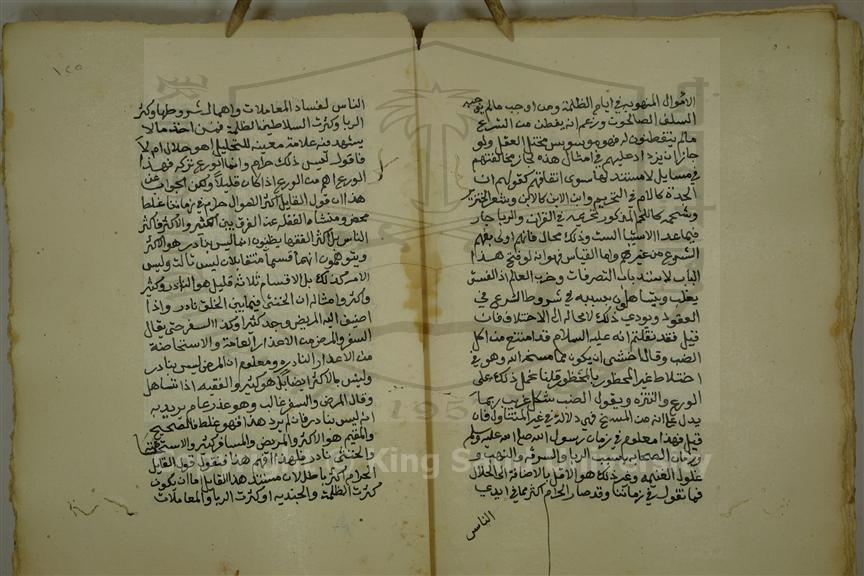 الاموال المنهوبه في ايام الظلمة ومن اوجب مالم يوجبه
السلف الصالحون وزعم انه يفطن من الشرع
مالم يتفطنون له فهو موسوس مختل العقل ولو
جاز ان يزد اد عليهم في امثال هذه لجاز مخالفتهم
في مسايل لا مستند لها سوى اتفاقهم كقولهم ان
الجدة كالام في التحريم وابن الابن كالابن وشعر الخنزير
وشحمه كاللحم المذكور تحريمه في القران والربا جار
فيما عدا الاشيا الستة وذلك محال فانهم اولى بفهم
الشرع من غيرهم واما القياس فهو انه لو فتح هذا
الباب لانسد باب التصرفات وخرب العالم اذ الفسق
يغلب ويتساهلون بسببه في شروط الشرع في
العقود ويودي ذلك لا محالة الى الاختلاط فان
قيل فقد نقلتم انه عليه السلام قد امتنع من اكل
الضب وقال اخشى ان يكون مما مسخه الله وهو في
اختلاط غير المحظور بالمحظور قلنا نحمل ذلك على
الورع والتنزه ونقول الضب شكل غريب ربما
يدل على انه من المسخ فهي دلالة في غير المتناول فان
قيل فهذا معلوم في زمان رسول الله صلى الله عليه وسلم
وزمان الصحابه بسبب الربا والسرقه والنهب و
غلول الغنيمه وغير ذلك هو الاقل بالاضافة الى الحلال
فما تقول في زماننا وقد صار الحرام اكثر مما في ايدي
الناس
١٢٥
الناس لفساد المعاملات واهمال شروطها وكثرة
الربا وكثرت السلاطين الظلمة فمن اخذ مالا
يشهد فيه علامة معينه للتحليل اهو حلال ام لا
فاقول ليس ذلك حرام وانما الورع تركه فهذا
الورع اهم من الورع اذا كان قليلا ولكن الجواب عن
هذا ان قول القايل اكثر الاموال حرام في زماننا غلط
محض ومنشاه الغفله عن الفرق بين الكثير والاكثر فاكثر
الناس بل اكثر الفقها يظنون ان ما ليس بنادر هو الاكثر
ويتوهمون انهما قسمان متقابلان ليس ثالث وليس
الامر كذلك بل الاقسام ثلاثة قليل هو النادر وكثير
واكثر ومثاله ان الخنثى فيما بين الخلق نادر واذا
اضيف اليه المريض وجد كثيرا وكذا السفر حتى يقال
السفر والمرض من الاعذار العامة والاستحاضة
من الاعذار النادره ومعلوم ان المرض ليس بنادر
وليس بالاكثر ايضا بل هو كثير والفقيه اذا تساهل
وقال المرض والسفر غالب وهو عذر عام يريد به
انه ليس بنادر فان لم يرد هذا فهو غلط والصحيح
والمقيم هو الاكثر والمريض والمسافر كثير والاستحاضة
والخنثى نادر فلهذا افهم هذا فنقول قول القايل
الحرام اكثر باطل لان مستند هذا القايل اما ان يكون
كثرت الظلمة والجنديه او كثرت الربا والمعاملات
King Saud University
1957